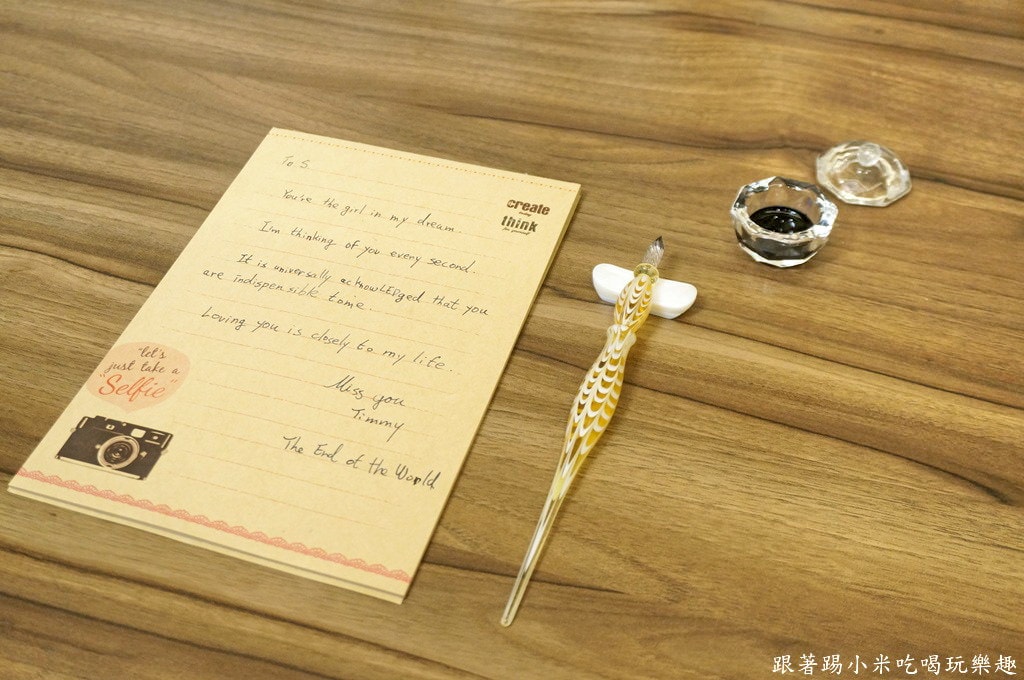 To S.
create
think
You're the girl in my dream.
I'm thinking of you every second.
It is universally acknowledged that you
are indispensible to me.
Loving you is closely to my life.
Miss you
Timmy
The End of the World
let's
just take a
"Selfie"
跟著踢小米吃喝玩樂趣